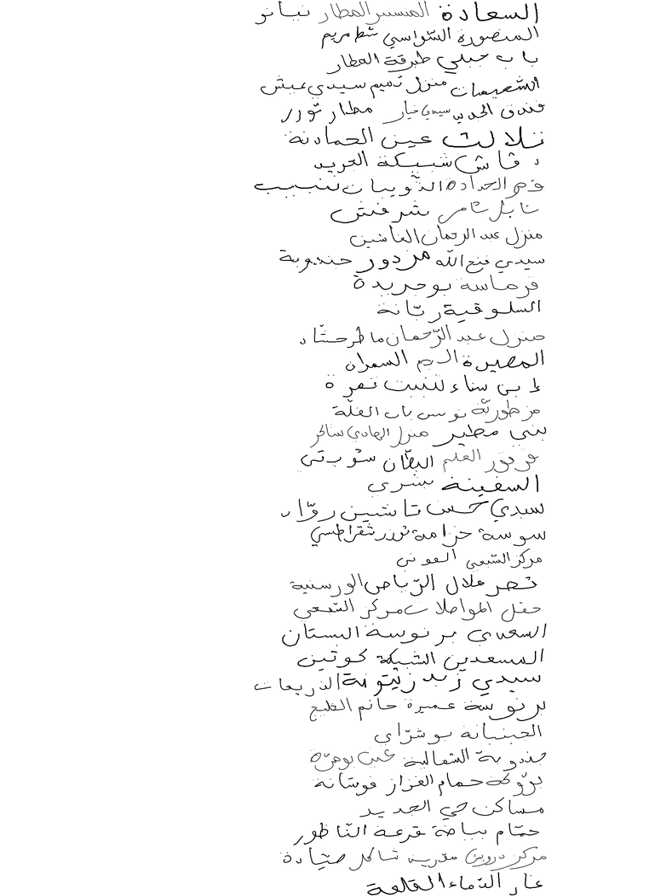 السعادة المنستير المطار نيانو
المنصورة السواسي شط مريم
باب جبلي طبرقة المطار
الشعيمات منزل تميم سيدي عيش
فندق الجديد سيدي خيار مطار توزر
تلالت عين الحمادنة
دقاش شبيكة الجريد
فج الحدادة الذويبات
نابل ثامر شرفش
منزل عبد الرحمان الماشين
سيدي فتح الله مزدور جندوبة
قرماسة بوجريدة
السلوقية رتانة
منزل عبد الرّحمان ماطر حشّاد
المصيرة الجم السمران
سناء
مزطوريّة تونس باب الفلّة
بني مطير منزل الهادي شاكر
فرفور القلم البطّان
السفينة بشري
لسيدي حسن تاشين روّاد
سوسة حزامة توزر شقراطسي
مركز الشعبي العوني
قصر هلال الرّياض الورسنية
حفل المواصلات مركز الشعبي
السعدي برنوسة البستان
المسعدين الشبيكة كوتين
سيدي زيد زيتونة الذريعات
برنوسة عميرة حاتم القليع
الجبنيانة بوشرّاي
جندوبة الشمالية عين بومرّة
برّوكة حمام الغزاز فوشانة
مساكن حي الجديد
حمّام بياضة قرعة النّاظور
مركز درويش مدرسة شاكر صيّادة
غار الدّماء القلعة